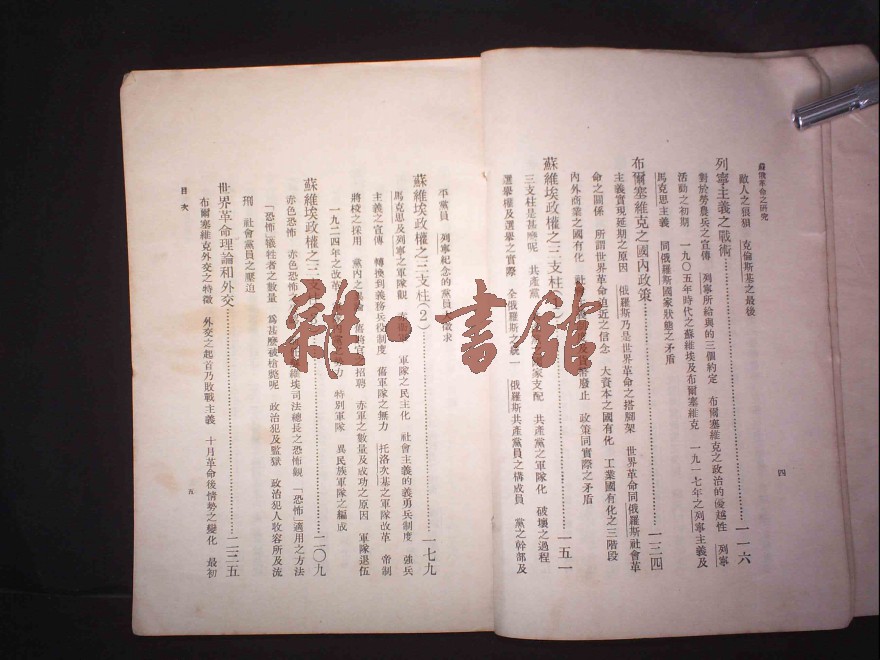 蘇俄革命之研究
四
敵人之狠狽 克倫斯基之最後
列寧主義之戰術 一一六
對於勞農兵之宣傳 列寧所給與的三個約定 布爾塞維克之政治的優越性 列寧
活動之初期 一九〇五年時代之蘇維埃及布爾塞維克 一九一七年之列寧主義及
馬克思主義 同俄羅斯國家狀態之矛盾
布爾塞維克之國內政策 一三四
主義實現延期之原因 俄羅斯乃是世界革命之搭腳架 世界革命同俄羅斯社會革
命之關係 所謂世界革命迫近之信念 大資本之國有化 工業國有化之三階段
內外商業之國有化 廢止 政策同實際之矛盾
蘇維埃政權之三支柱 一五一
三支柱是甚麼呢 共產黨 家支配 共產黨之軍隊化 破壞之過程
選舉權及選舉之實際 全俄羅斯之統一 俄羅斯共產黨員之構成員 黨之幹部及
平黨員 列寧紀念的黨員 徵求
蘇維埃政權之三支柱(2) 一七九
馬克思及列寧之軍隊觀 軍隊之民主化 社會主義的義勇兵制度 強兵
主義之宣傳 轉換到義務兵役制度 舊軍隊之無力 托洛次基之軍隊改革 帝制
將校之採用 黨內之 招聘 赤軍之數量及成功之原因 軍隊退伍
一九二四年之改革 力 特別軍隊 異民族軍隊之編成
蘇維埃政權之三支 二〇九
赤色恐怖 赤色恐怖之 維埃司法總長之恐怖觀 「恐怖」適用之方法
「恐怖」犧牲者之數量 爲甚麼被槍斃呢 政治犯及監獄 政治犯人收容所及流
刑 社會黨員之壓迫
世界革命理論和外交 二二五
布爾塞維克外交之特徵 外交之起首乃敗戰主義 十月革命後情勢之變化 最初
目次
五
雜·書館